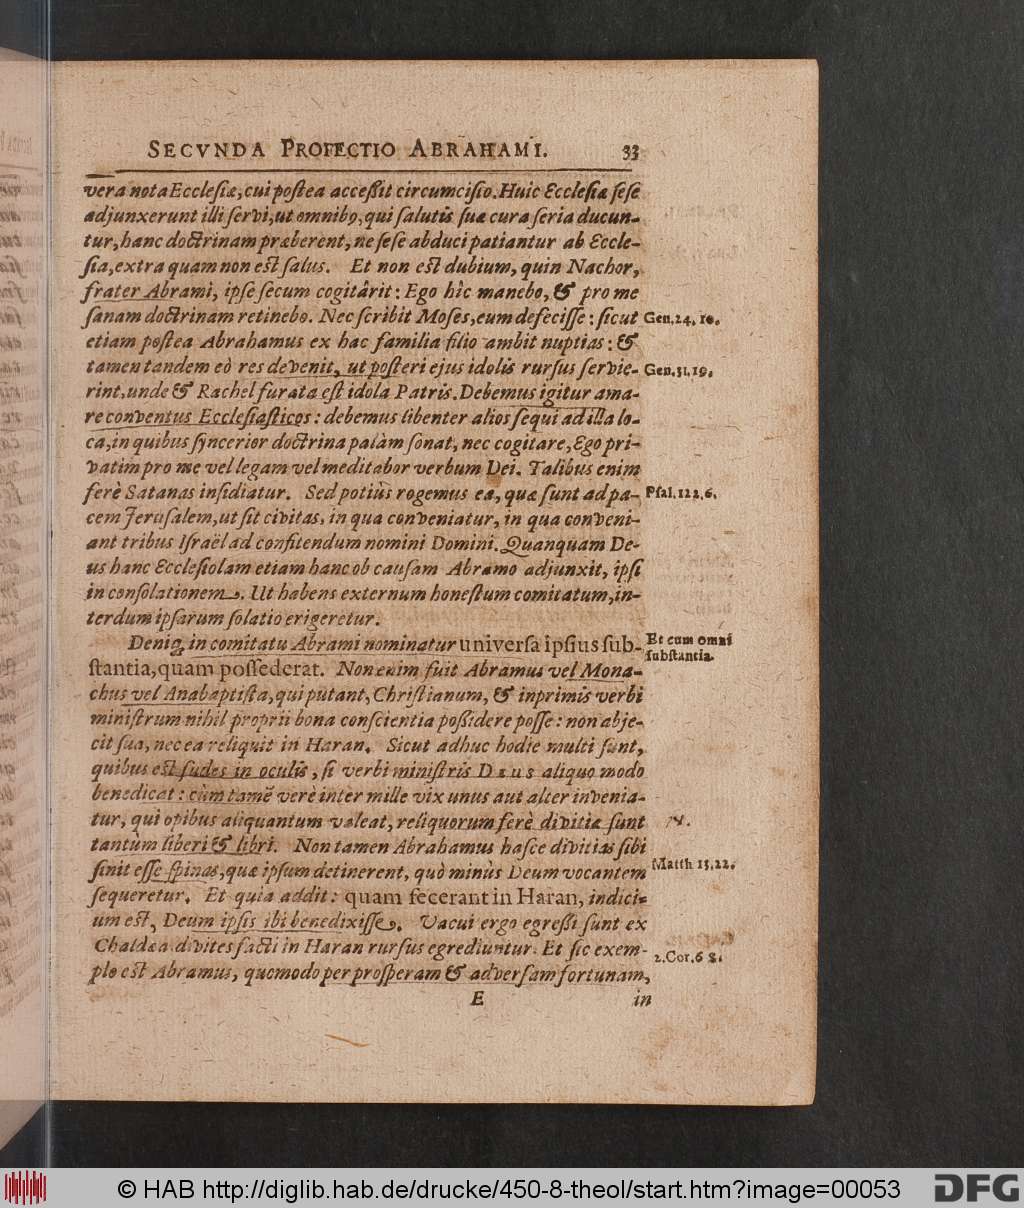 SECVNDA PROFECTIO ABRAHAMI. 33
vera nota Ecclesiæ, cui postea accessit circumcisio. Huic Ecclesiæ sese
adjunxerunt illi servi, ut omnibꝰ, qui salutis suæ cura seria ducun-
tur, hanc doctrinam præberent, ne sese abduci patiantur ab Eccle-
sia, extra quam non est salus. Et non est dubium, quin Nachor,
frater Abrami, ipse secum cogitârit: Ego hîc manebo, & pro me
sanam doctrinam retinebo. Nec scribit Moses, eum defecisse: sicut Gen. 24, 10.
etiam postea Abrahamus ex hac familia filio ambit nuptias: &
tamen tandem eò res devenit, ut posteri ejus idolis rursus servie- Gen. 31, 19.
rint, unde & Rachel furata est idola Patris. Debemus igitur ama-
re conventus Ecclesiasticos: debemus libenter alios sequi ad illa lo-
ca, in quibus syncerior doctrina palàm sonat, nec cogitare, Ego pri-
vatim pro me vel legam vel meditabor verbum Dei. Talibus enim
ferè Satanas insidiatur. Sed potiùs rogemus ea, quæ sunt ad pa- Psal. 122, 6.
cem Jerusalem, ut sit civitas, in qua conveniatur, in qua conveni-
ant tribus Israël ad confitendum nomini Domini. Quanquam De-
us hanc Ecclesiolam etiam hanc ob causam Abramo adjunxit, ipsi
in consolationem. Ut habens externum honestum comitatum, in-
terdum ipsarum solatio erigeretur.
Deniq; in comitatu Abrami nominatur universa ipsius sub- Et cum omni
stantia, quam possederat. Non enim fuit Abramus vel Mona- substantia.
chus vel Anabaptista, qui putant, Christianum, & inprimis verbi
ministrum nihil proprii bona conscientia possidere posse: non abje-
cit sua, nec ea reliquit in Haran. Sicut adhuc hodie multi sunt,
quibus est sudes in oculis, si verbi ministris DEUS aliquo modo
benedicat: cùm tamẽ verè inter mille vix unus aut alter invenia-
tur, qui opibus aliquantum valeat, reliquorum ferè divitiæ sunt
tantùm liberi & libri. Non tamen Abrahamus hasce divitias sibi
sinit esse spinas, quæ ipsum detinerent, quò minùs Deum vocantem Matth 13, 22.
sequeretur. Et quia addit: quam fecerant in Haran, indici-
um est, Deum ipsis ibi benedixisse. Vacui ergo egressi sunt ex
Chaldæa divites facti in Haran rursus egrediuntur. Et sic exem-
plo est Abramus, quomodo per prosperam & adversam fortunam, 2. Cor. 6 8.
E in
© HAB http://diglib.hab.de/drucke/450-8-theol/start.htm?image=00053 DFG